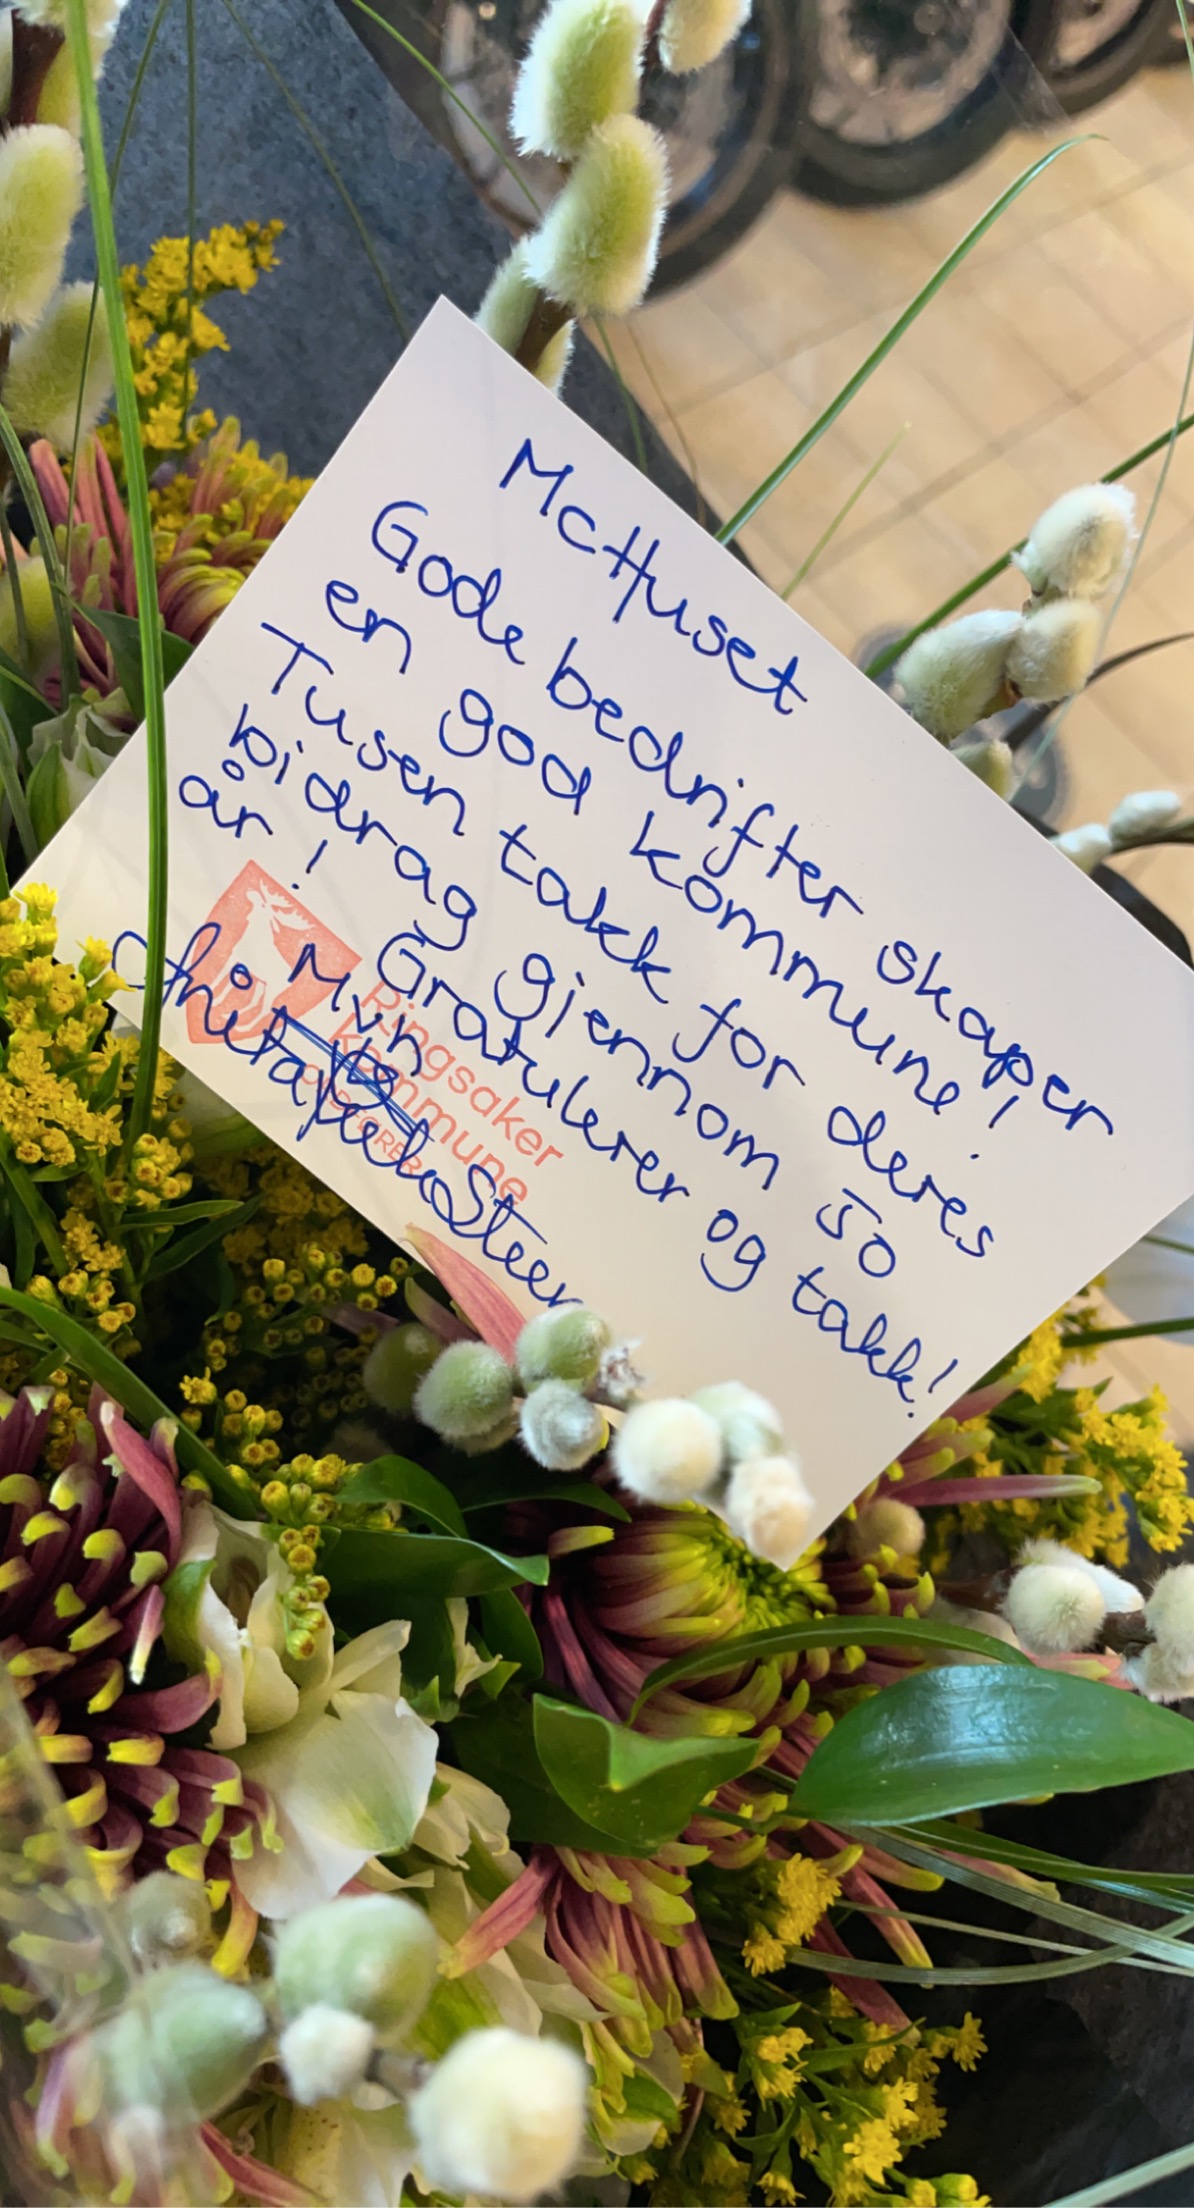 McHuset
Gode bedrifter skaper
en god kommune!
Tusen takk for deres
bidrag gjennom 50
år! Gratulerer og takk!
Mvh
Steen
Ringsaker
kommune